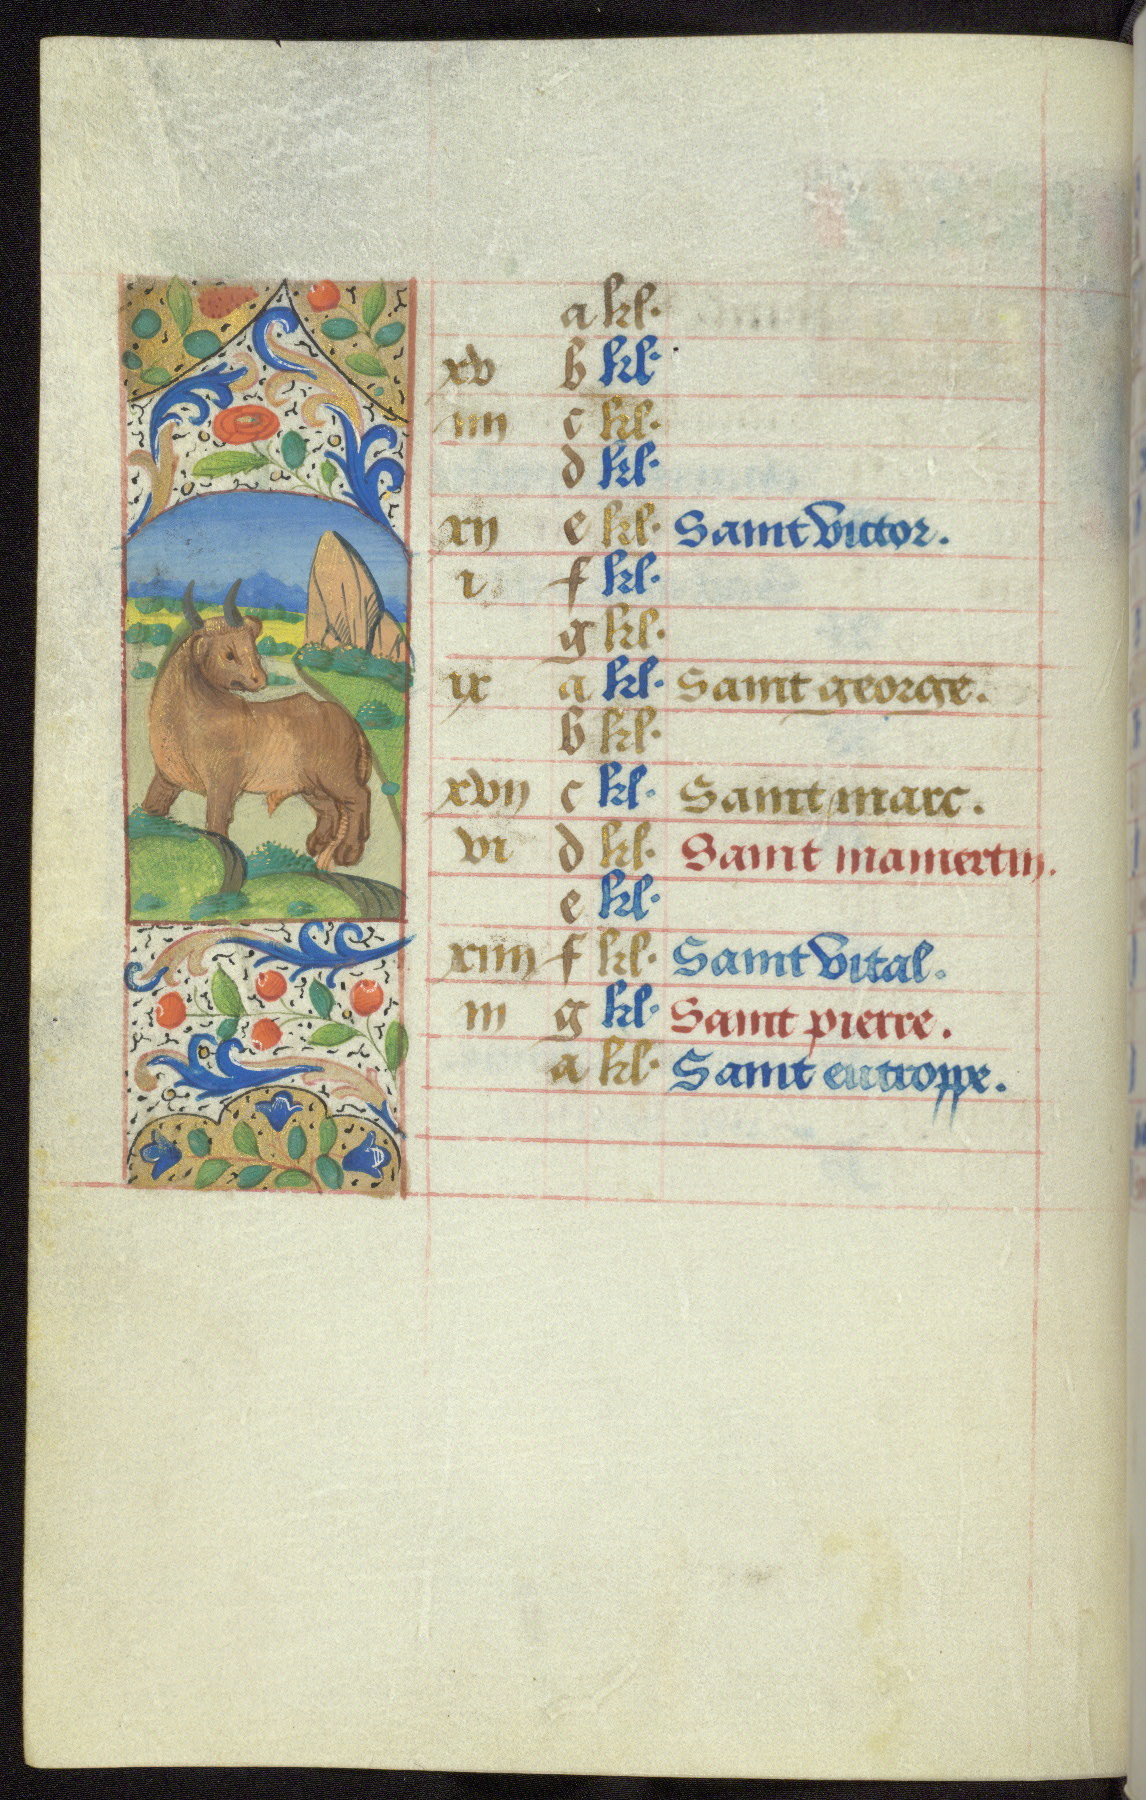 a kl.
xv b kl.
iiii c kl.
d kl.
xii e kl. Saint Victor.
i f kl.
g kl.
ix a kl. Saint george.
b kl.
xvii c kl. Saint marc.
vi d kl. Saint mamertin.
e kl.
xiiii f kl. Saint Vital.
iii g kl. Saint pierre.
a kl. Saint eutroppe.